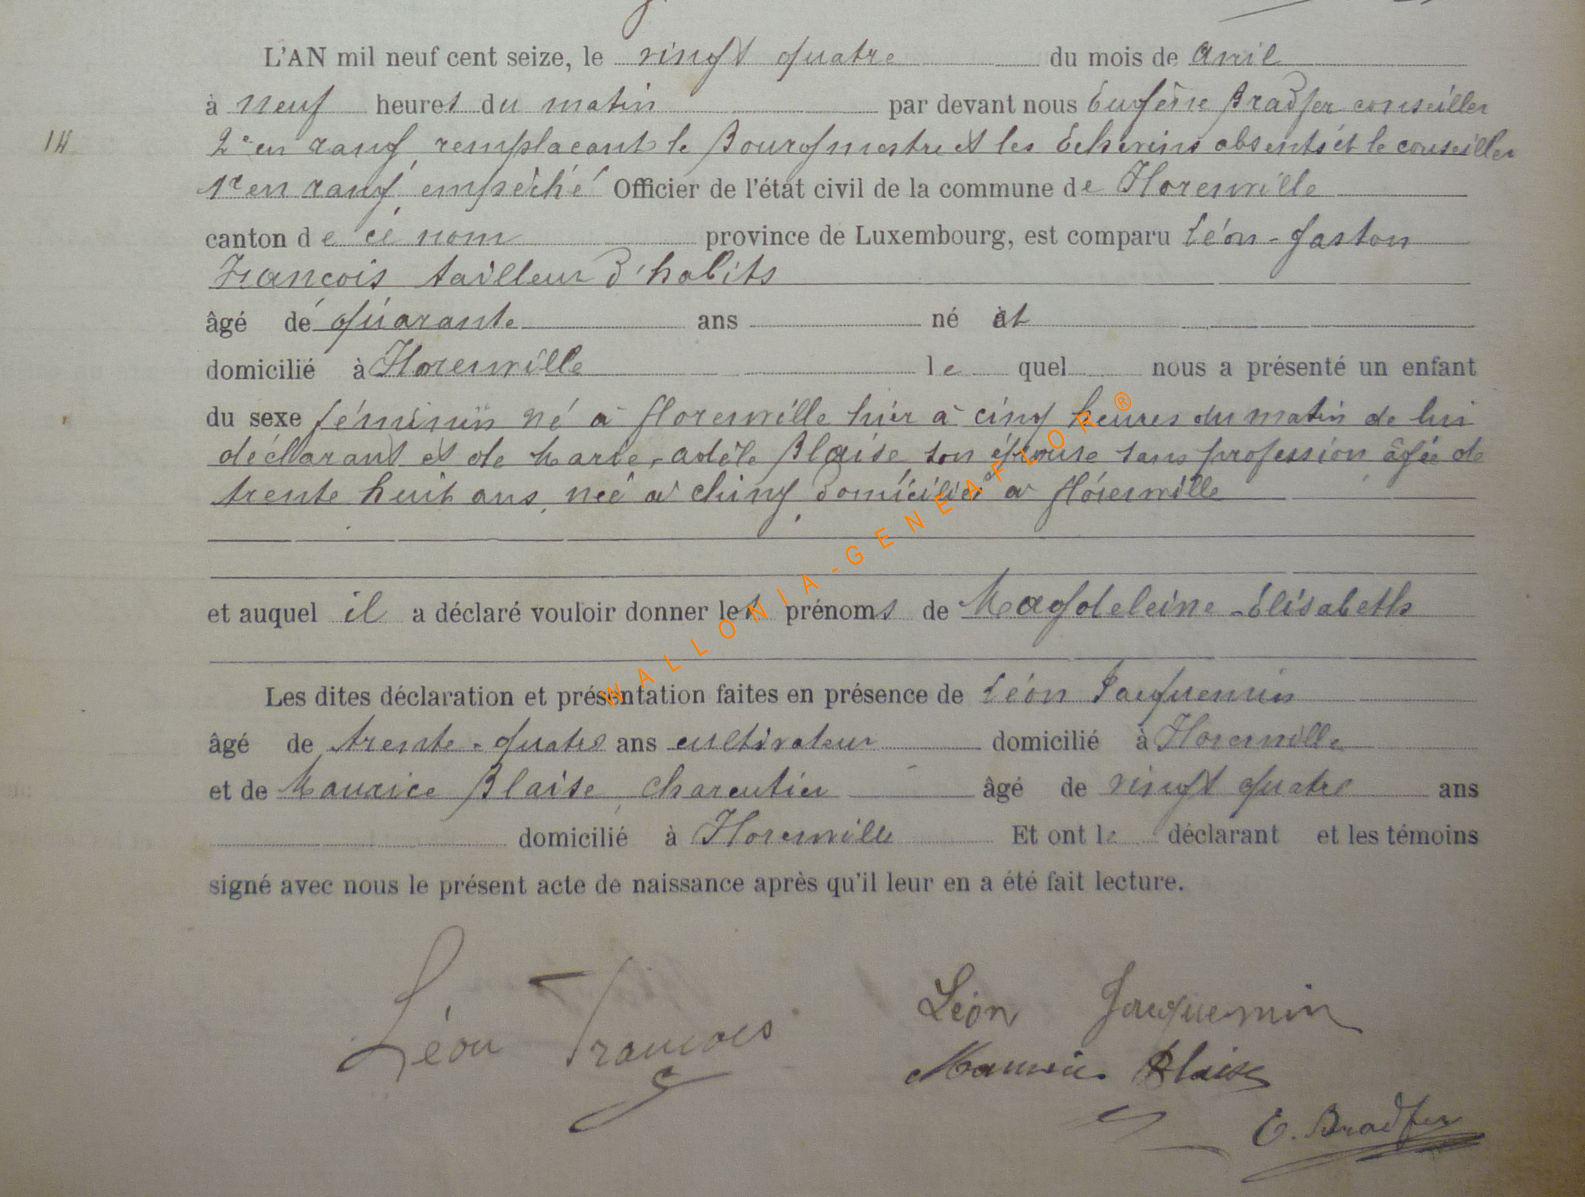 L'AN mil neuf cent seize, le vingt quatre du mois de avril
à neuf heures du matin par devant nous Eugène Bradfer conseiller
14 2e en rang, remplaçant le Bourgmestre et les Echevins absents et le conseiller
1r en rang, empêché Officier de l'état civil de la commune de Florenville
canton de ce nom province de Luxembourg, est comparu Léon-Gaston
François tailleur d'habits
âgé de quarante ans né et
domicilié à Florenville lequel nous a présenté un enfant
du sexe féminin né à florenville hier à cinq heures du matin de lui
déclarant et de Marie-adèle Blaise son épouse sans profession âgée de
trente huit ans, née à Chiny, domiciliée à florenville
et auquel il a déclaré vouloir donner les prénoms de Magdeleine-Elisabeth
Les dites déclaration et présentation faites en présence de Léon Jacquemin
âgé de trente-quatre ans cultivateur domicilié à Florenville
et de Maurice Blaise, charcutier âgé de vingt quatre ans
domicilié à Florenville Et ont le déclarant et les témoins
signé avec nous le présent acte de naissance après qu'il leur en a été fait lecture.
Léon François
Léon Jacquemin
Maurice Blaise
E. Bradfer
WALLONIA-GENEAFLOR®